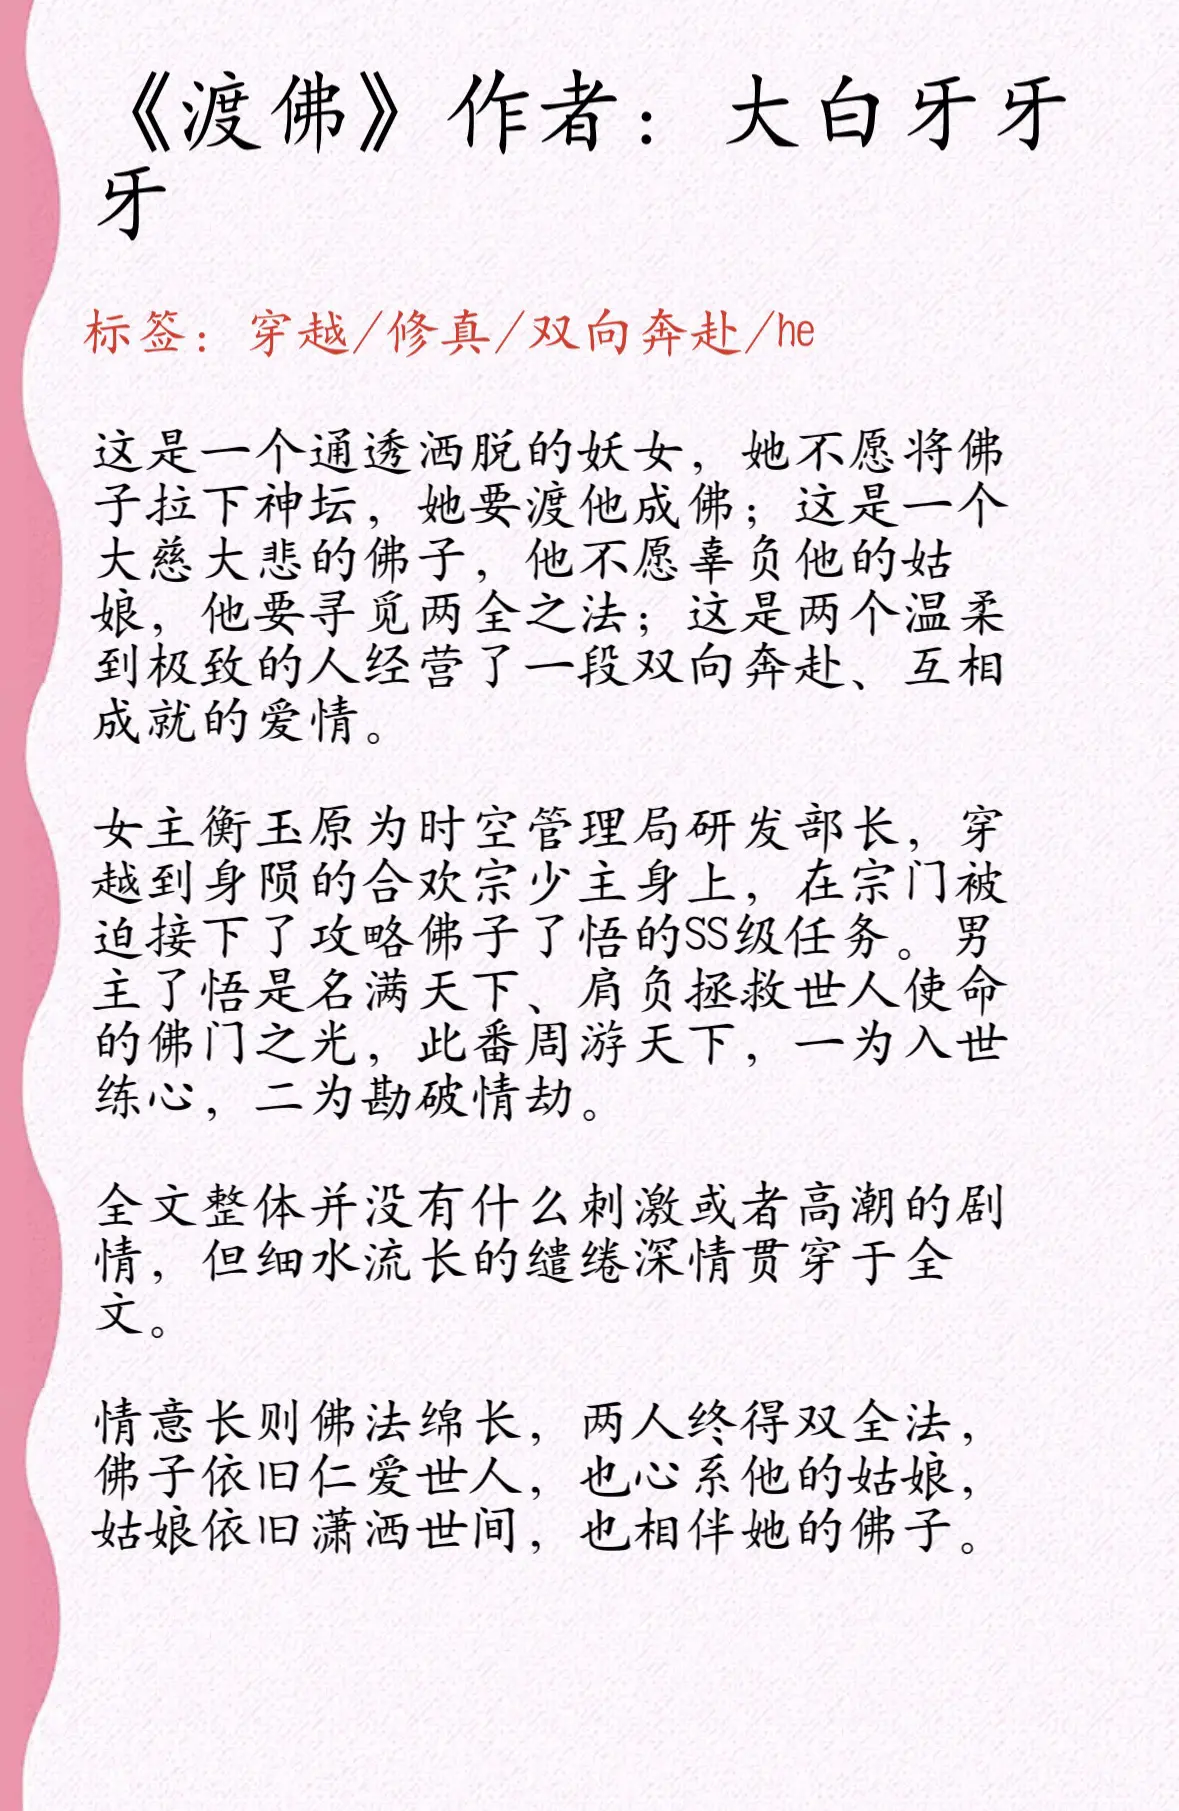 《渡佛》作者：大白牙牙
牙
标签：穿越/修真/双向奔赴/he
这是一个通透洒脱的妖女，她不愿将佛
子拉下神坛，她要渡他成佛；这是一个
大慈大悲的佛子，他不愿辜负他的姑
娘，他要寻觅两全之法；这是两个温柔
到极致的人经营了一段双向奔赴、互相
成就的爱情。
女主衡玉原为时空管理局研发部长，穿
越到身陨的合欢宗少主身上，在宗门被
迫接下了攻略佛子了悟的SS级任务。男
主了悟是名满天下、肩负拯救世人使命
的佛门之光，此番周游天下，一为入世
练心，二为勘破情劫。
全文整体并没有什么刺激或者高潮的剧
情，但细水流长的缱绻深情贯穿于全
文。
情意长则佛法绵长，两人终得双全法，
佛子依旧仁爱世人，也心系他的姑娘，
姑娘依旧潇洒世间，也相伴她的佛子。